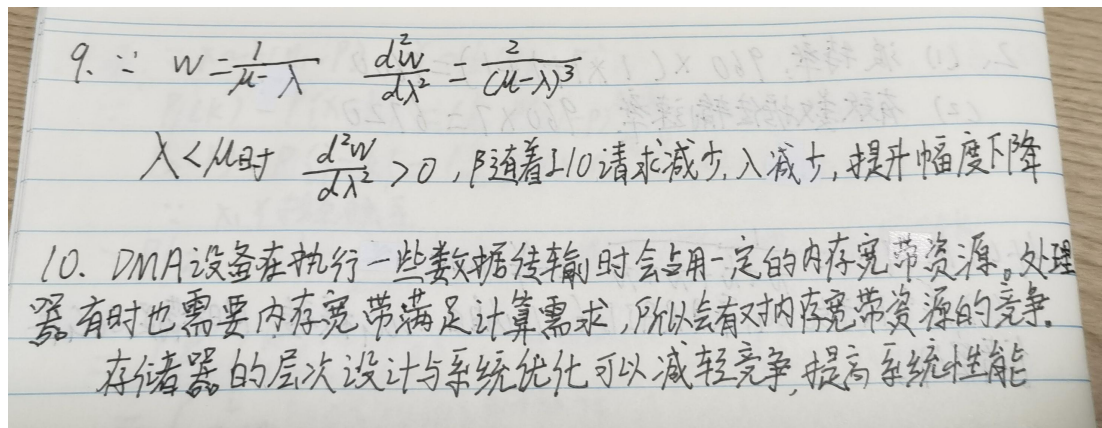 9. ∵ W = 1/(μ-λ)  d²W/dλ² = 2/(μ-λ)³
λ<μ时 d²W/dλ² >0,随着I/O请求减少,λ减少,提升幅度下降
10. DMA设备在执行一些数据传输时会占用一定的内存宽带资源。处理
器有时也需要内存宽带满足计算需求,所以会有对内存宽带资源的竞争.
存储器的层次设计与系统优化可以减轻竞争,提高系统性能